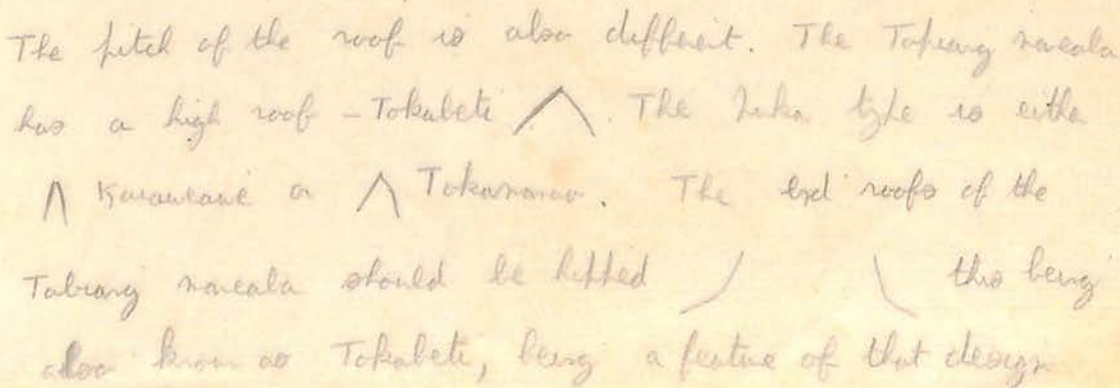 The pitch of the roof is also different. The Tabiang maneaba
has a high roof - Tokabeti. The Inki type is either
Karawani or Tokamanoa. The end roofs of the
Tabiang maneaba should be hipped this being
also known as Tokabeti, being a feature of that design